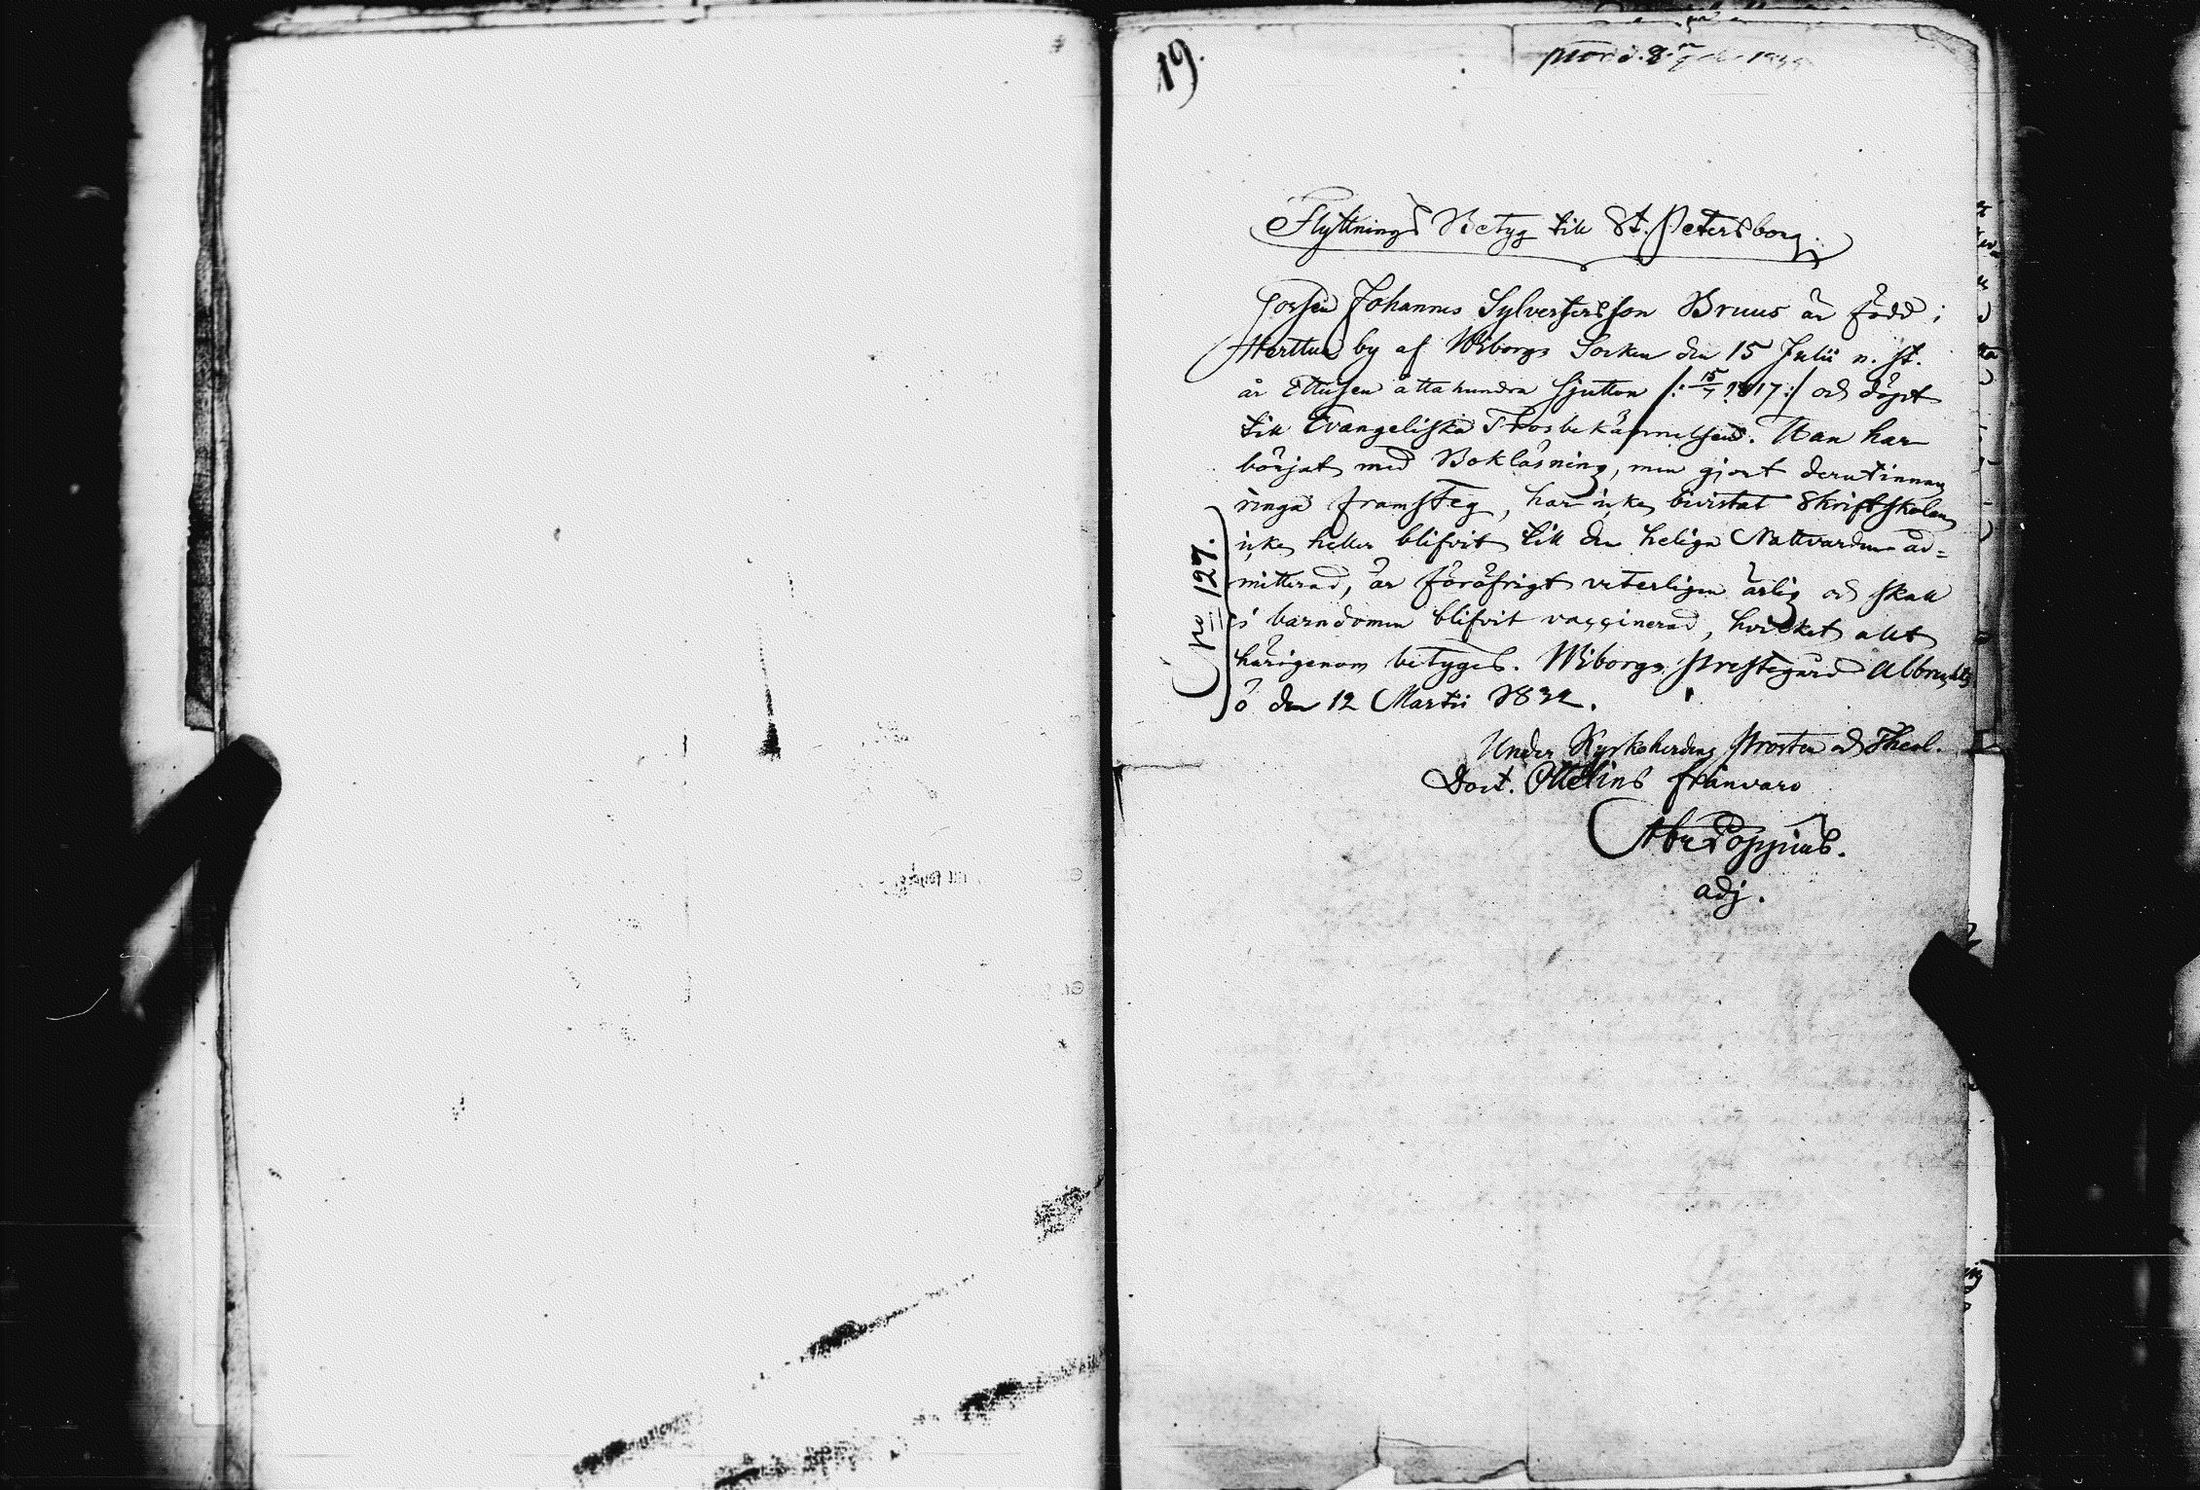 19.
Flyttnings Betyg till St. Petersborg.
Johannes Sylvestersson Bruus är född i
Herttua by af Wiborgs Socken den 15 Julii n. st.
år Ettusen åttahundra sjutton /: 15/7 1817 :/ och döpt
till Evangeliska Trosbekännelsen. Han har
börjat med Bokläsning, men gjort derutinnan
ringa framsteg, har icke bivistat Skriftskolan
icke heller blifvit till den heliga Nattvarden ad=
mitterad, är föröfrigt veterligen ärlig och skall
i barndomen blifvit vaccinerad, hvilket allt
härigenom betygas. Wiborgs Prestegård Albrechts
ö den 12 Martii 1832.
No 127.
Under Kyrkoherden Prosten och Theol.
Doct. Ottelins frånvaro
Poppius.
adj.